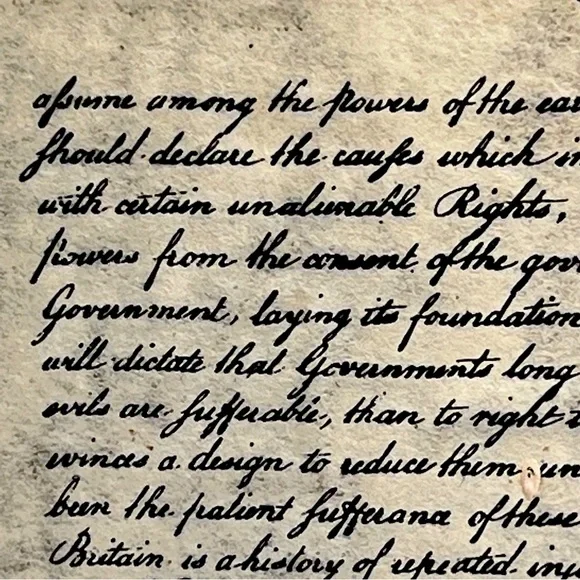 aſsume among the powers of the ea
ſhould declare the cauſes which im
with certain unalienable Rights,
powers from the consent of the gov
Government, laying its foundation
will dictate that Governments long
evils are ſufferable, than to right t
evinces a design to reduce them un
been the patient ſufferance of these
Britain is a history of repeated inj